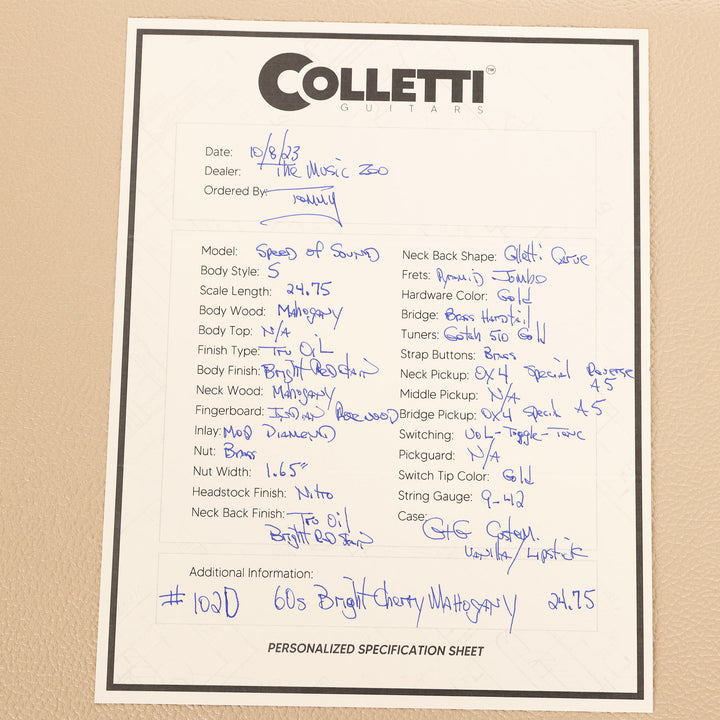 COLLETTI™
GUITARS
Date: 10/8/23
Dealer: The Music Zoo
Ordered By: Tommy
Model: Speed of Sound
Body Style: S
Scale Length: 24.75
Body Wood: Mahogany
Body Top: N/A
Finish Type: Tru Oil
Body Finish: Bright Red Stain
Neck Wood: Mahogany
Fingerboard: Indian Rosewood
Inlay: Mod Diamond
Nut: Brass
Nut Width: 1.65"
Headstock Finish: Nitro
Neck Back Finish: Tru Oil
Bright Red Stain
Neck Back Shape: Colletti Carve
Frets: Pyramid Jumbo
Hardware Color: Gold
Bridge: Brass Hardtail
Tuners: Gotoh 510 Gold
Strap Buttons: Brass
Neck Pickup: OX4 Special Reverse
A5
Middle Pickup: N/A
Bridge Pickup: OX4 Special A5
Switching: Vol-Toggle-Tone
Pickguard: N/A
Switch Tip Color: Gold
String Gauge: 9-42
Case: G+G Custom
Vanilla/Lipstick
Additional Information:
#102D 60s Bright Cherry Mahogany 24.75
PERSONALIZED SPECIFICATION SHEET